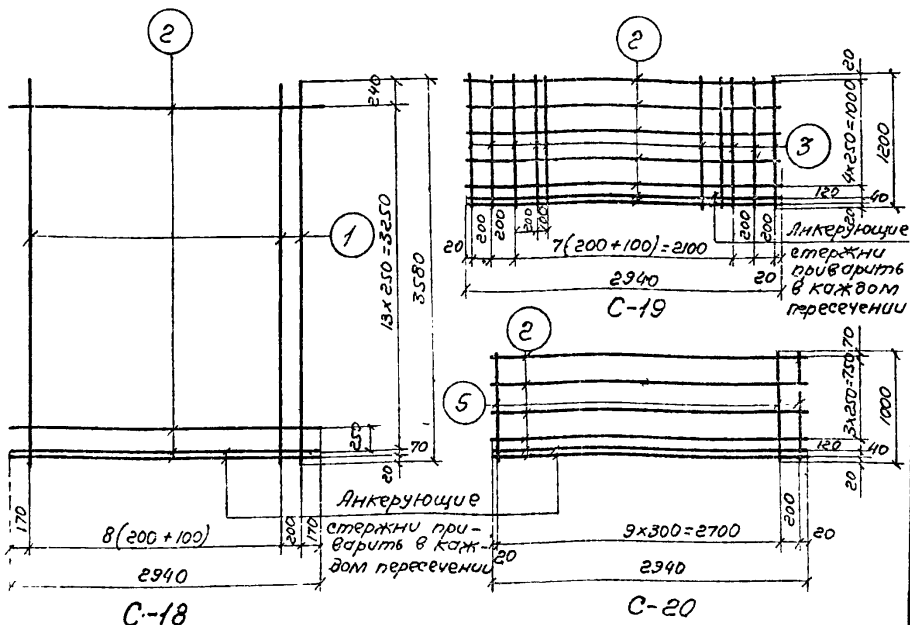 2
240
13×250=3250
3580
1
250
70
20
170
8(200+100)
200
170
2940
С-18
Анкерующие
стержни при-
варить в каж-
дом пересечении
2
20
4×250=1000
1200
3
120
40
20
20
200
200
200
100
7(200+100)=2100
200
200
20
2940
С-19
Анкерующие
стержни
приварить
в каждом
пересечении
2
5
70
3×250=750
1000
120
40
20
20
9×300=2700
200
20
2940
С-20